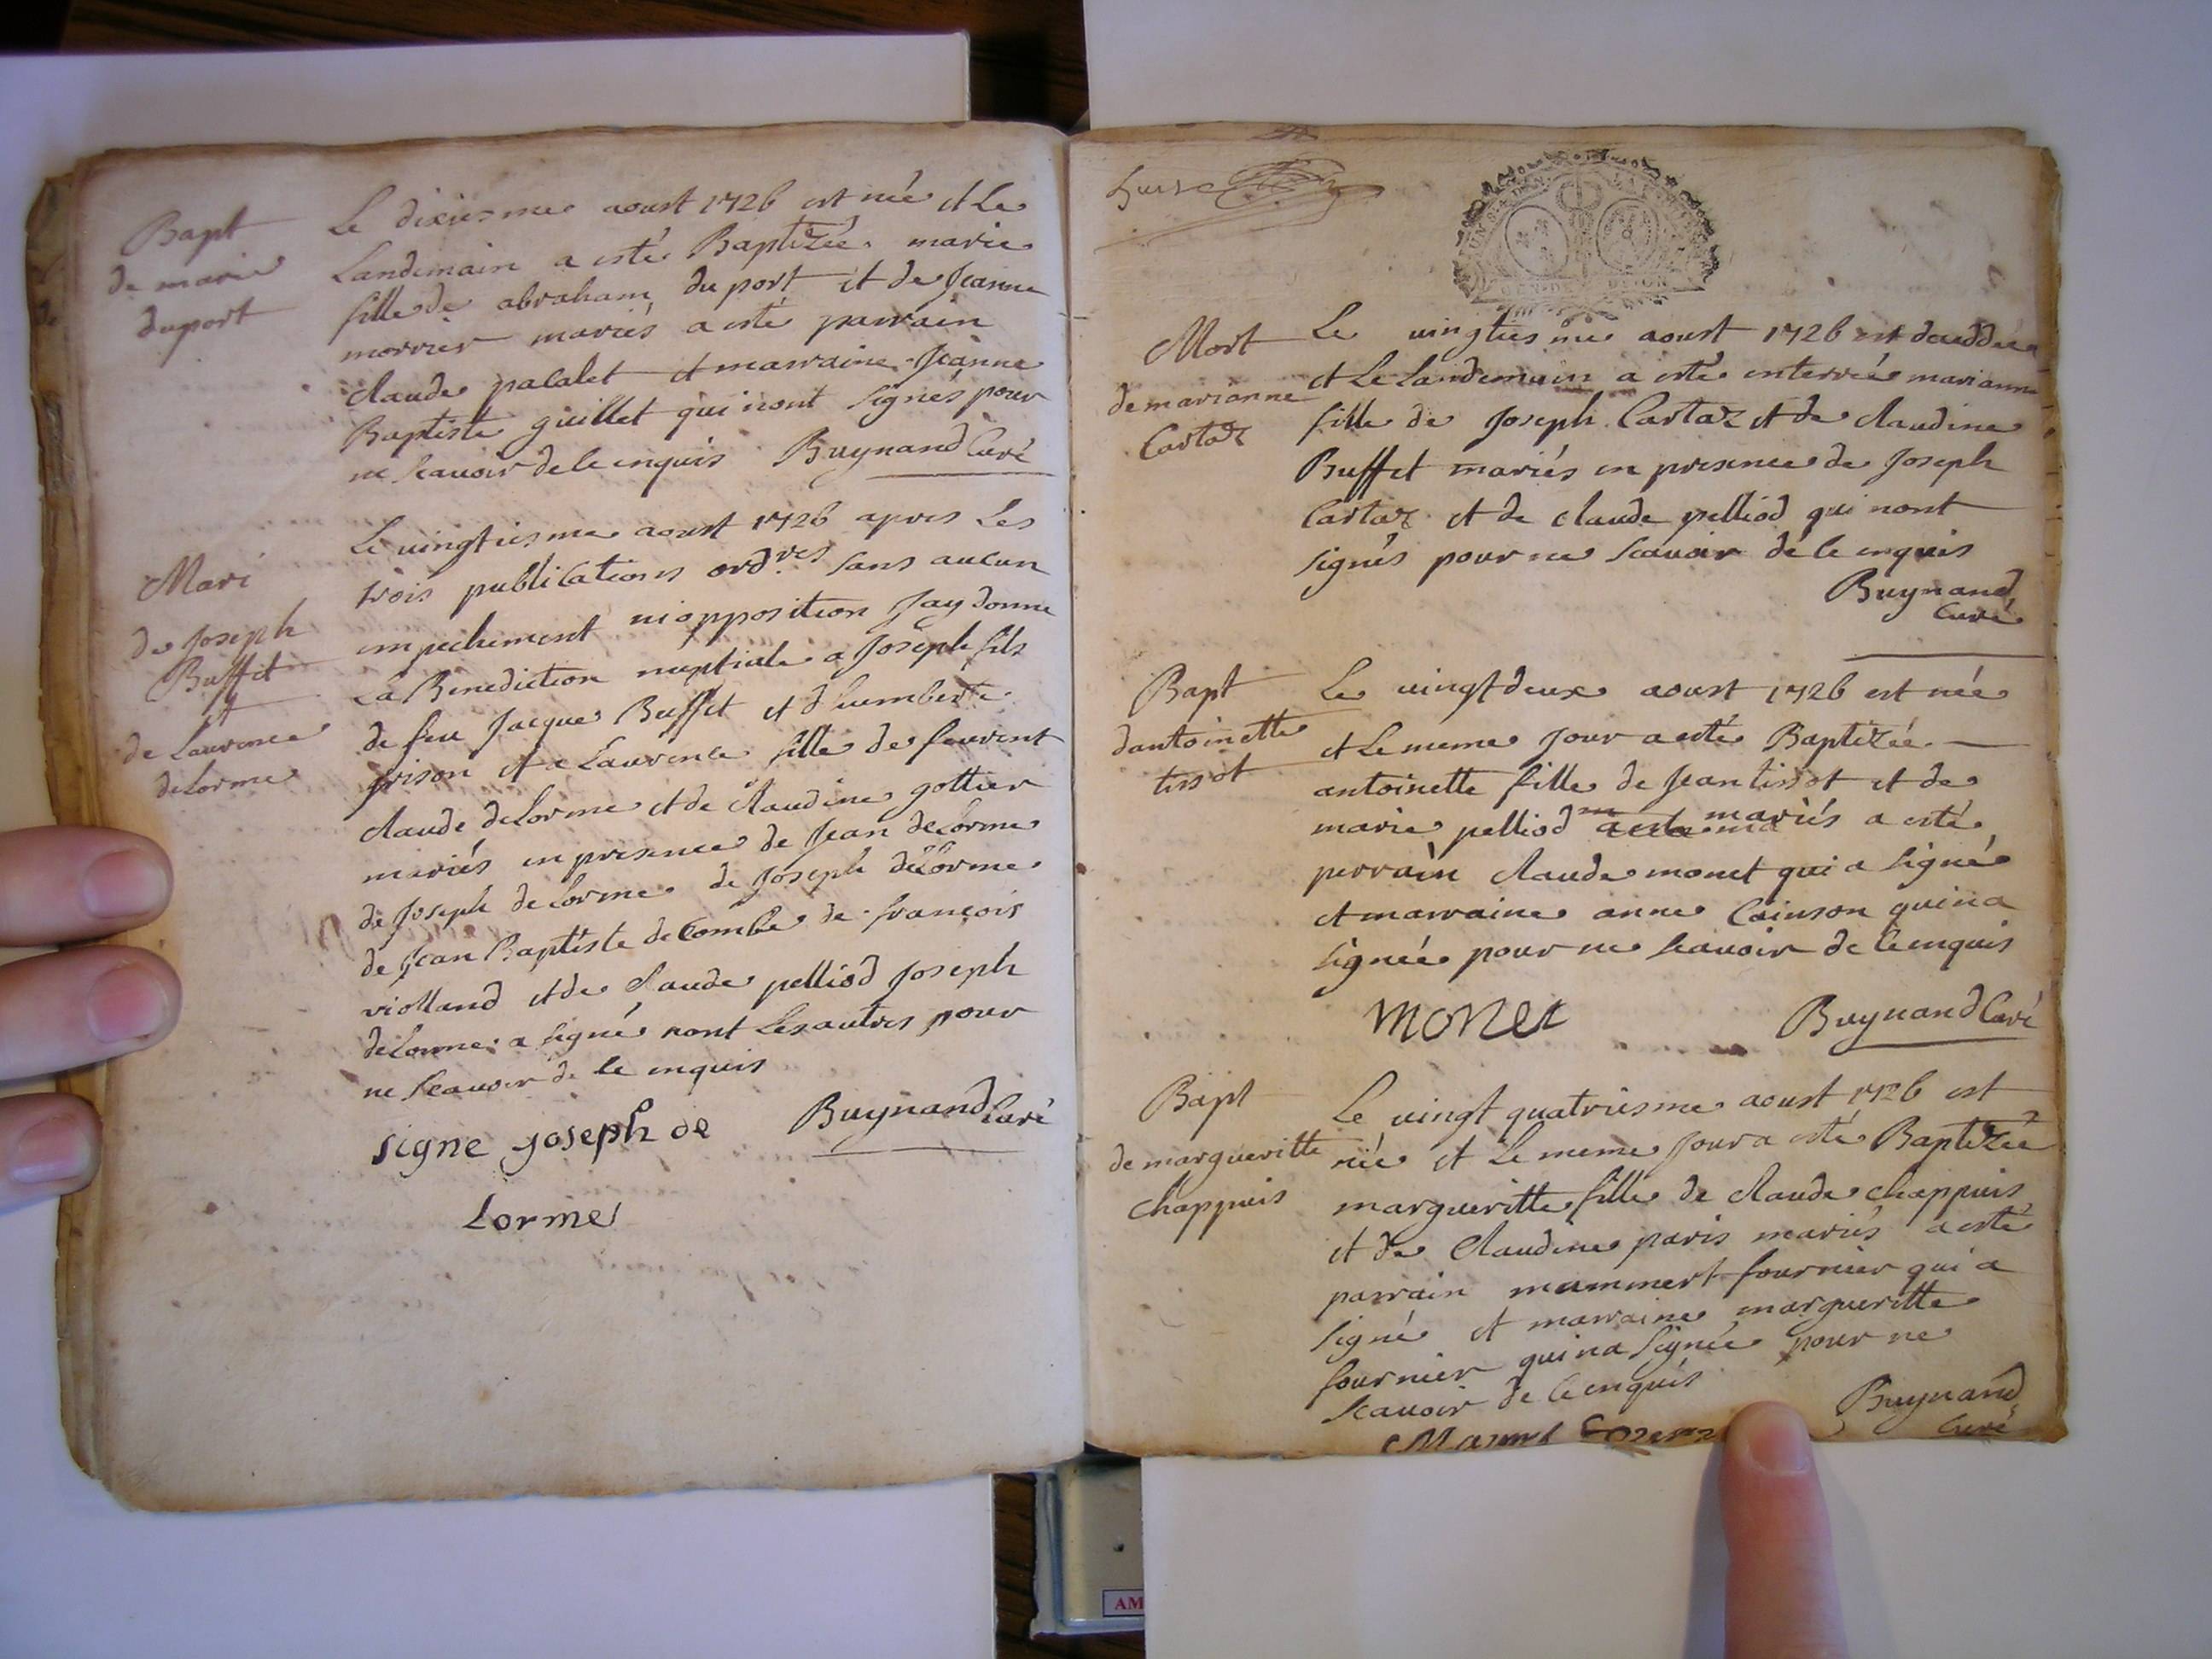 Bapt
de marie
duport
Le dixiesme aoust 1726 est née et Le
Landemain a esté Baptizée marie
fille de abraham du port et de Jeanne
morrier mariés a esté parrain
claude palalet et marraine Jeanne
Baptiste guillet qui nont signés pour
ne scavoir de ce enquis Buynand Curé
Mari
de Joseph
Buffet
et
de Laurence
deLorme
Le vingtiesme aoust 1726 apres Les
trois publications ord.res sans aucun
empechement ni opposition Jay donne
La Benediction nuptiale a Joseph fils
de feu Jacque Buffet et d'humberte
grison et a Laurence fille de feu
claude deLorme et de claudine gottier
mariés en presence de Jean deLorme
de Joseph deLorme de Joseph deLorme
de Jean Baptiste deCombe de françois
violland et de claude pelliod Joseph
deLorme a signé nont Les autres pour
ne scavoir de ce enquis
signe joseph de Buynand Curé
Lorme
Mort
de marianne
Cartaz
Le vingtiesme aoust 1726 est deceddée
et Le Landemain a esté enterrée marianne
fille de Joseph Cartaz et de claudine
Buffet mariés en presence de Joseph
Cartaz et de claude pelliod qui nont
signés pour ne scavoir de ce enquis
Buynand
Curé
Bapt
dantoinette
tissot
Le vingtdeux aoust 1726 est née
et Le meme Jour a esté Baptizée
antoinette fille de Jean tissot et de
marie pelliod mariés a esté
perrain claude monet qui a signé
et marraine anne Coinson qui na
signée pour ne scavoir de ce enquis
monet Buynand Curé
Bapt
de margueritte
chappuis
Le vingt quatriesme aoust 1726 est
née et Le meme Jour a esté Baptizée
margueritte fille de claude chappuis
et de claudine paris mariés a esté
parrain mammert fournier qui a
signé et marraine margueritte
fournier qui na signée pour ne
scavoir de ce enquis
Buynand
Curé